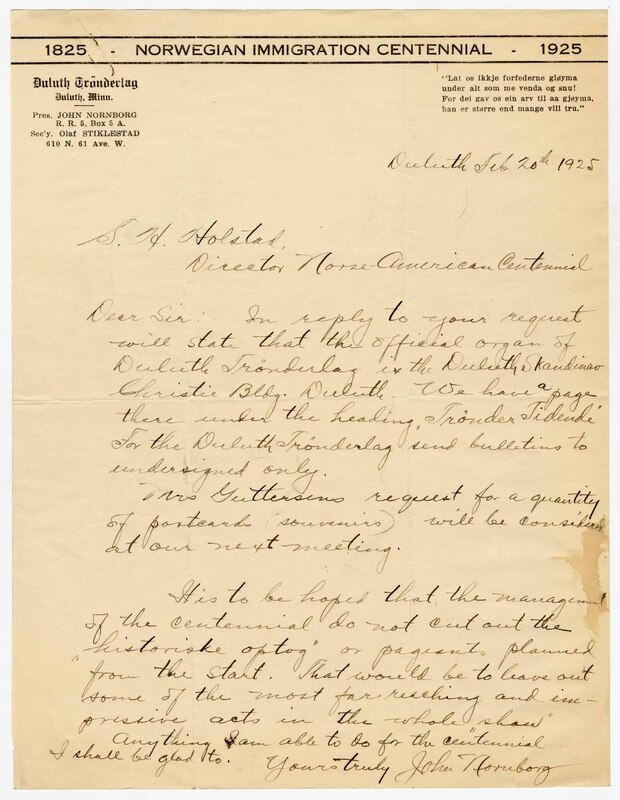 1825 - NORWEGIAN IMMIGRATION CENTENNIAL - 1925
Duluth Trönderlag
Duluth, Minn.
Pres. JOHN NORNBORG
R. R. 5, Box 5 A.
Sec'y. Olaf STIKLESTAD
610 N. 61 Ave. W.
"Lat os ikkje forfederne gløyma
under alt som me venda og snu!
For dei gav os ein arv til aa gjøyma,
han er større end mange vill tru."
Duluth Feb. 20th 1925
S. H. Holstad,
Director Norse-American Centennial
Dear Sir: In reply to your request
will state that the official organ of
Duluth Trönderlag is the Duluth Skandinav
Christie Bldg. Duluth. We have a page
there under the heading "Trönder Tidende"
For the Duluth Trönderlag send bulletins to
undersigned only.
Mrs Guttersens request for a quantity
of postcards (souvenirs) will be considered
at our next meeting.
It is to be hoped that the management
of the centennial do not cut out the
"historiske optog" or pageants planned
from the start. That would be to leave out
some of the most far-reaching and im-
pressive acts in the "whole show"
Anything I am able to do for the centennial
I shall be glad to. Yours truly John Nornborg